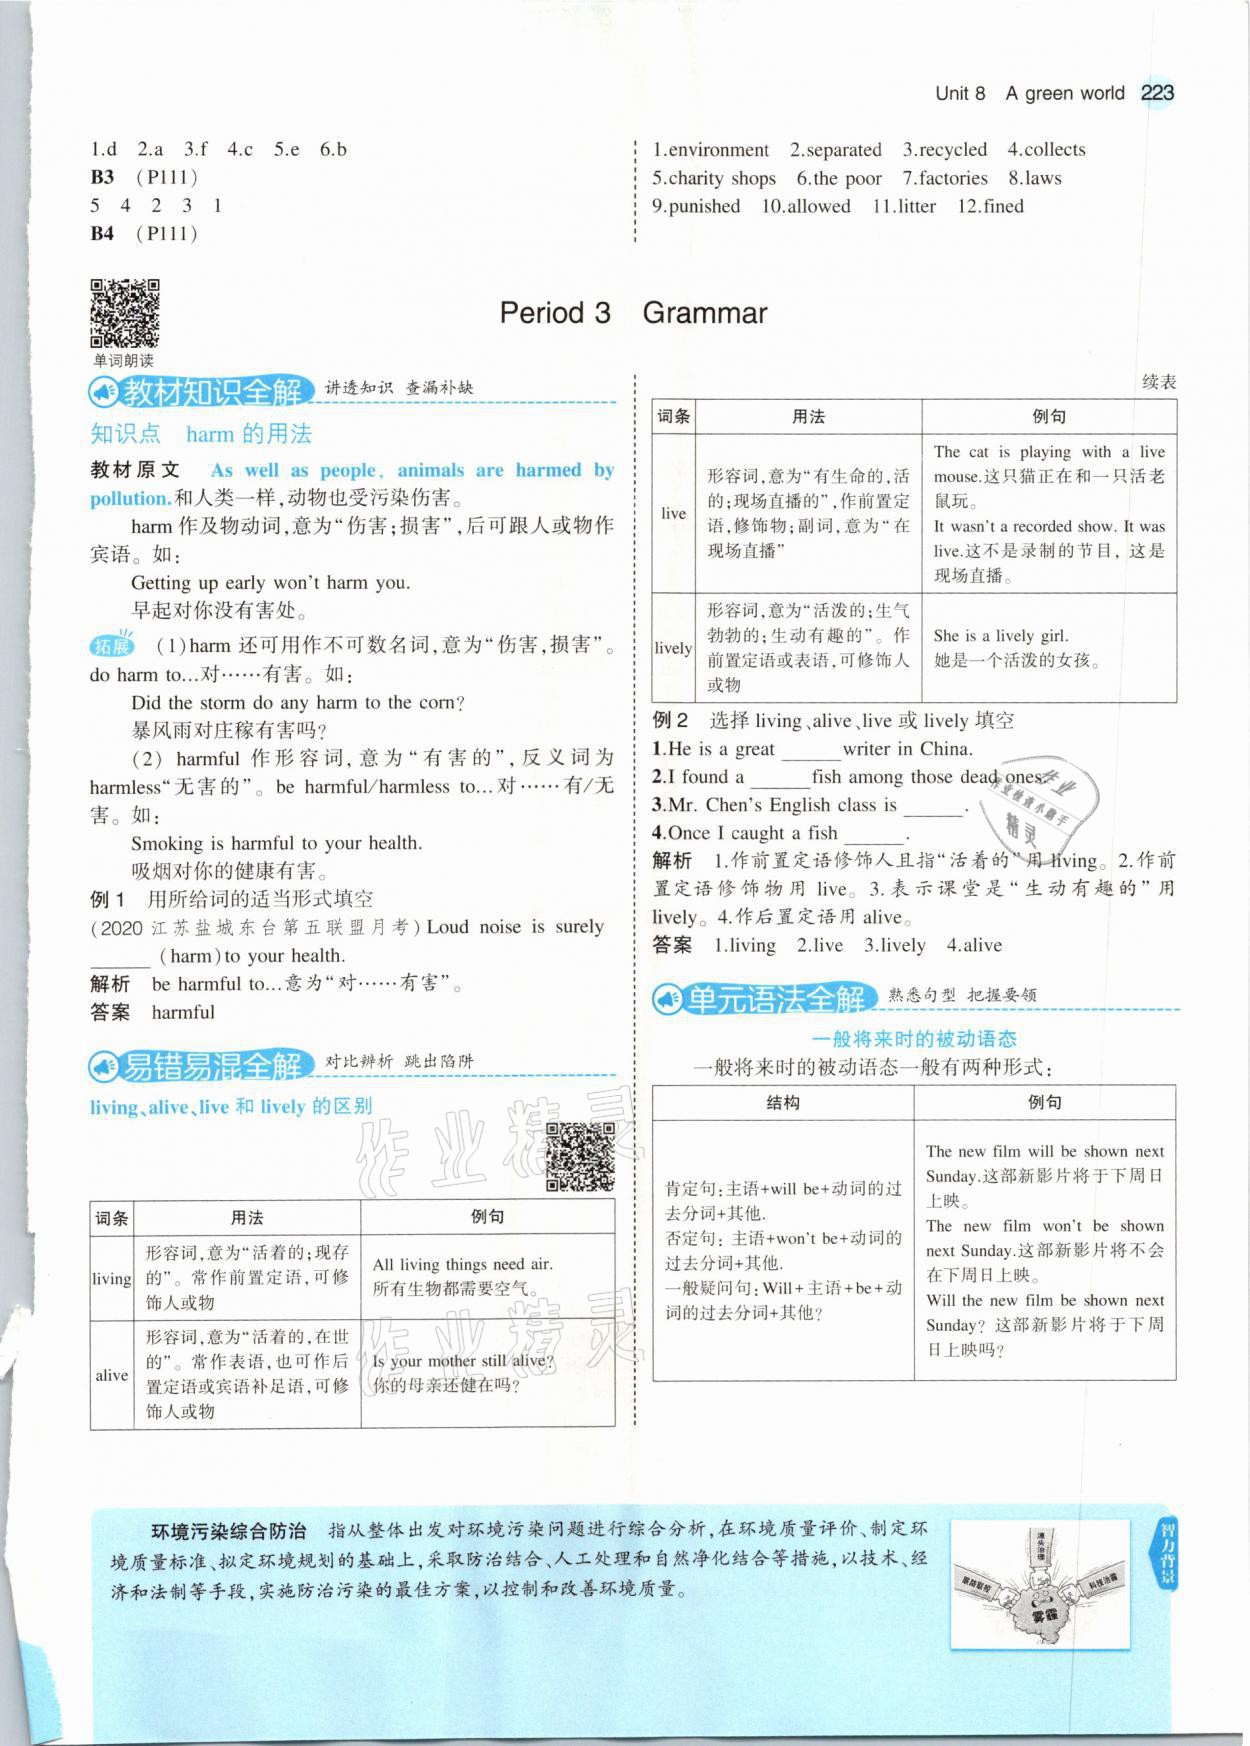 Unit 8 A green world 223
1.d 2.a 3.f 4.c 5.e 6.b
B3 (P111)
5 4 2 3 1
B4 (P111)
1.environment 2.separated 3.recycled 4.collects
5.charity shops 6.the poor 7.factories 8.laws
9.punished 10.allowed 11.litter 12.fined
单词朗读
Period 3 Grammar
教材知识全解 讲透知识 查漏补缺
知识点 harm 的用法
教材原文 As well as people, animals are harmed by
pollution.和人类一样,动物也受污染伤害。
harm 作及物动词,意为“伤害;损害”,后可跟人或物作
宾语。如:
Getting up early won't harm you.
早起对你没有害处。
拓展 (1)harm 还可用作不可数名词,意为“伤害,损害”。
do harm to...对……有害。如:
Did the storm do any harm to the corn?
暴风雨对庄稼有害吗?
(2) harmful 作形容词,意为“有害的”,反义词为
harmless“无害的”。be harmful/harmless to...对……有/无
害。如:
Smoking is harmful to your health.
吸烟对你的健康有害。
例 1 用所给词的适当形式填空
(2020 江苏盐城东台第五联盟月考)Loud noise is surely
______ (harm)to your health.
解析 be harmful to...意为“对……有害”。
答案 harmful
易错易混全解 对比辨析 跳出陷阱
living、alive、live 和 lively 的区别
词条 用法 例句
living 形容词,意为“活着的;现存
的”。常作前置定语,可修
饰人或物
All living things need air.
所有生物都需要空气。
alive 形容词,意为“活着的,在世
的”。常作表语,也可作后
置定语或宾语补足语,可修
饰人或物
Is your mother still alive?
你的母亲还健在吗?
续表
词条 用法 例句
live 形容词,意为“有生命的,活
的;现场直播的”,作前置定
语,修饰物;副词,意为“在
现场直播”
The cat is playing with a live
mouse.这只猫正在和一只活老
鼠玩。
It wasn't a recorded show. It was
live.这不是录制的节目, 这是
现场直播。
lively 形容词,意为“活泼的;生气
勃勃的;生动有趣的”。作
前置定语或表语,可修饰人
或物
She is a lively girl.
她是一个活泼的女孩。
例 2 选择 living、alive、live 或 lively 填空
1.He is a great ______ writer in China.
2.I found a ______ fish among those dead ones.
3.Mr. Chen's English class is ______.
4.Once I caught a fish ______.
解析 1.作前置定语修饰人且指“活着的”用 living。2.作前
置定语修饰物用 live。3.表示课堂是“生动有趣的”用
lively。4.作后置定语用 alive。
答案 1.living 2.live 3.lively 4.alive
单元语法全解 熟悉句型 把握要领
一般将来时的被动语态
一般将来时的被动语态一般有两种形式:
结构 例句
肯定句:主语+will be+动词的过
去分词+其他.
否定句: 主语+won't be+动词的
过去分词+其他.
一般疑问句:Will+主语+be+动
词的过去分词+其他?
The new film will be shown next
Sunday.这部新影片将于下周日
上映。
The new film won't be shown
next Sunday.这部新影片将不会
在下周日上映。
Will the new film be shown next
Sunday? 这部新影片将于下周
日上映吗?
作业
作业检查小助手
精灵
作业精灵
作业精灵
环境污染综合防治 指从整体出发对环境污染问题进行综合分析,在环境质量评价、制定环
境质量标准、拟定环境规划的基础上,采取防治结合、人工处理和自然净化结合等措施,以技术、经
济和法制等手段,实施防治污染的最佳方案,以控制和改善环境质量。
智力背景
源头治理
联防联控
科技治霾
雾霾